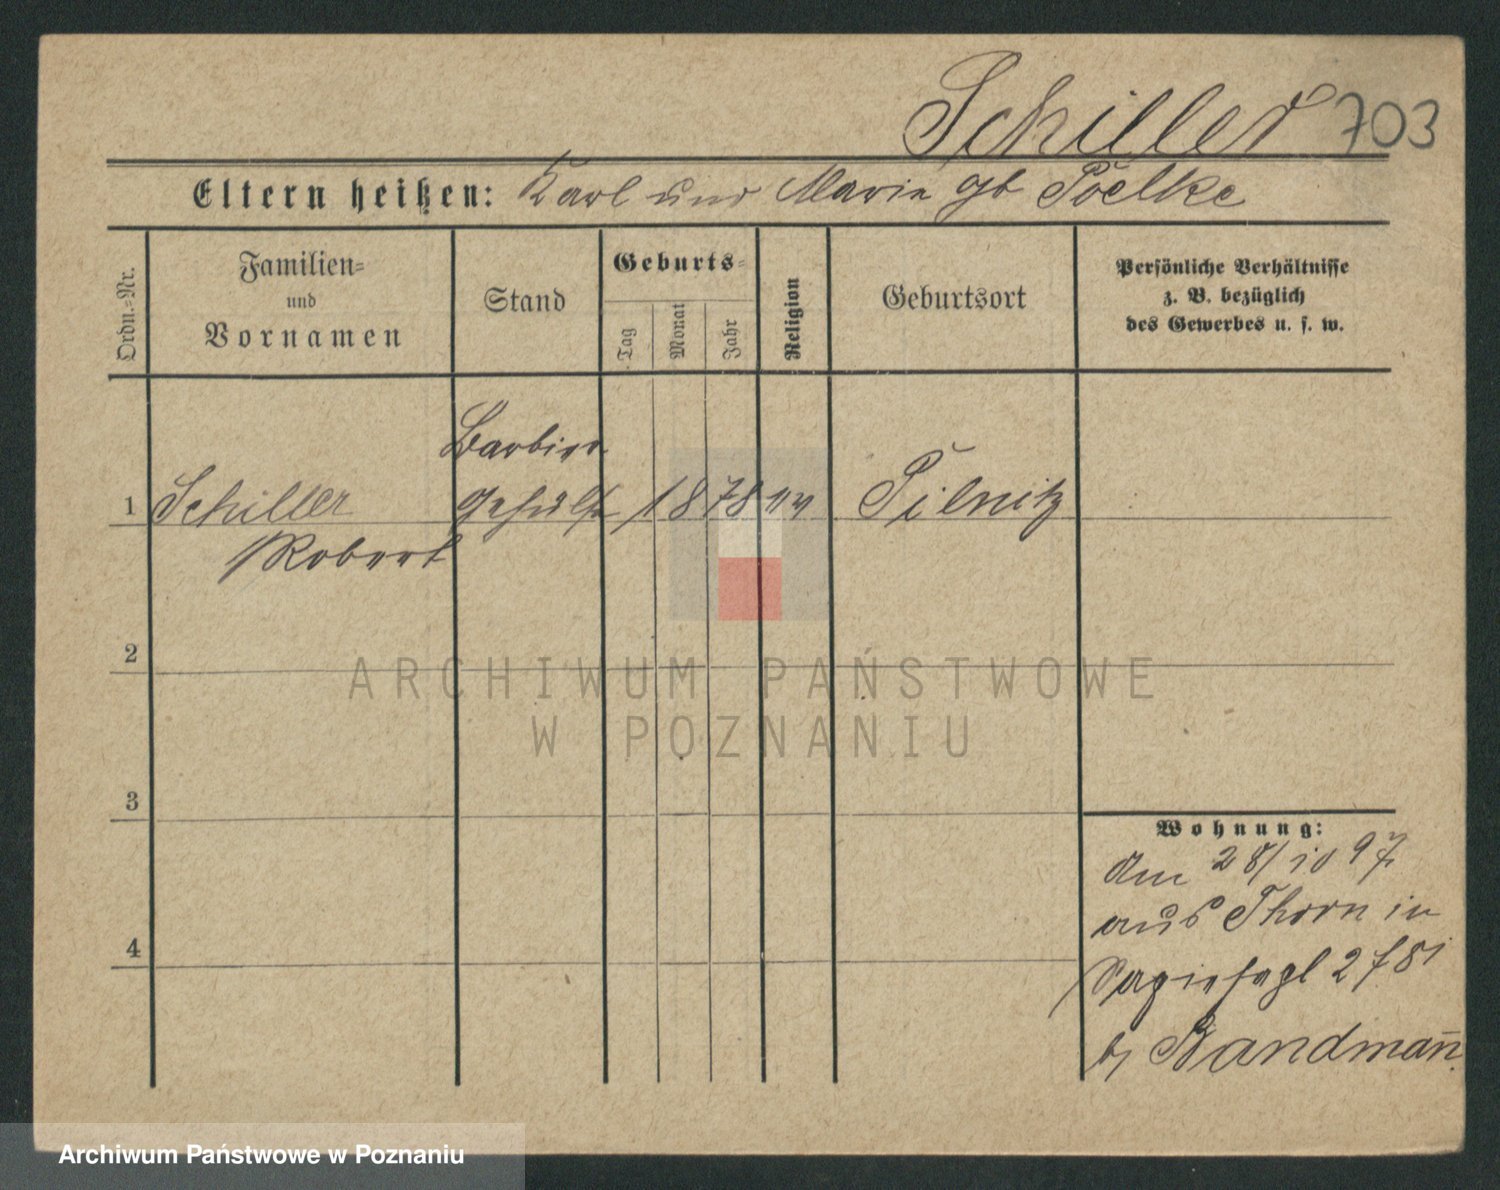 Schiller 703
Eltern heißen: Karl und Marie gb Poelke
Ordn.=Nr.
Familien=
und
Vornamen
Stand
Geburts=
Tag
Monat
Jahr
Religion
Geburtsort
Persönliche Verhältnisse
z. B. bezüglich
des Gewerbes u. s. w.
1
Schiller
Robert
Barbier
Gehülfe
1878
Pilnitz
2
3
4
Wohnung:
den 28/10 97
aus Thorn in
278
b/ Bandmann
ARCHIWUM PAŃSTWOWE
W POZNANIU
Archiwum Państwowe w Poznaniu